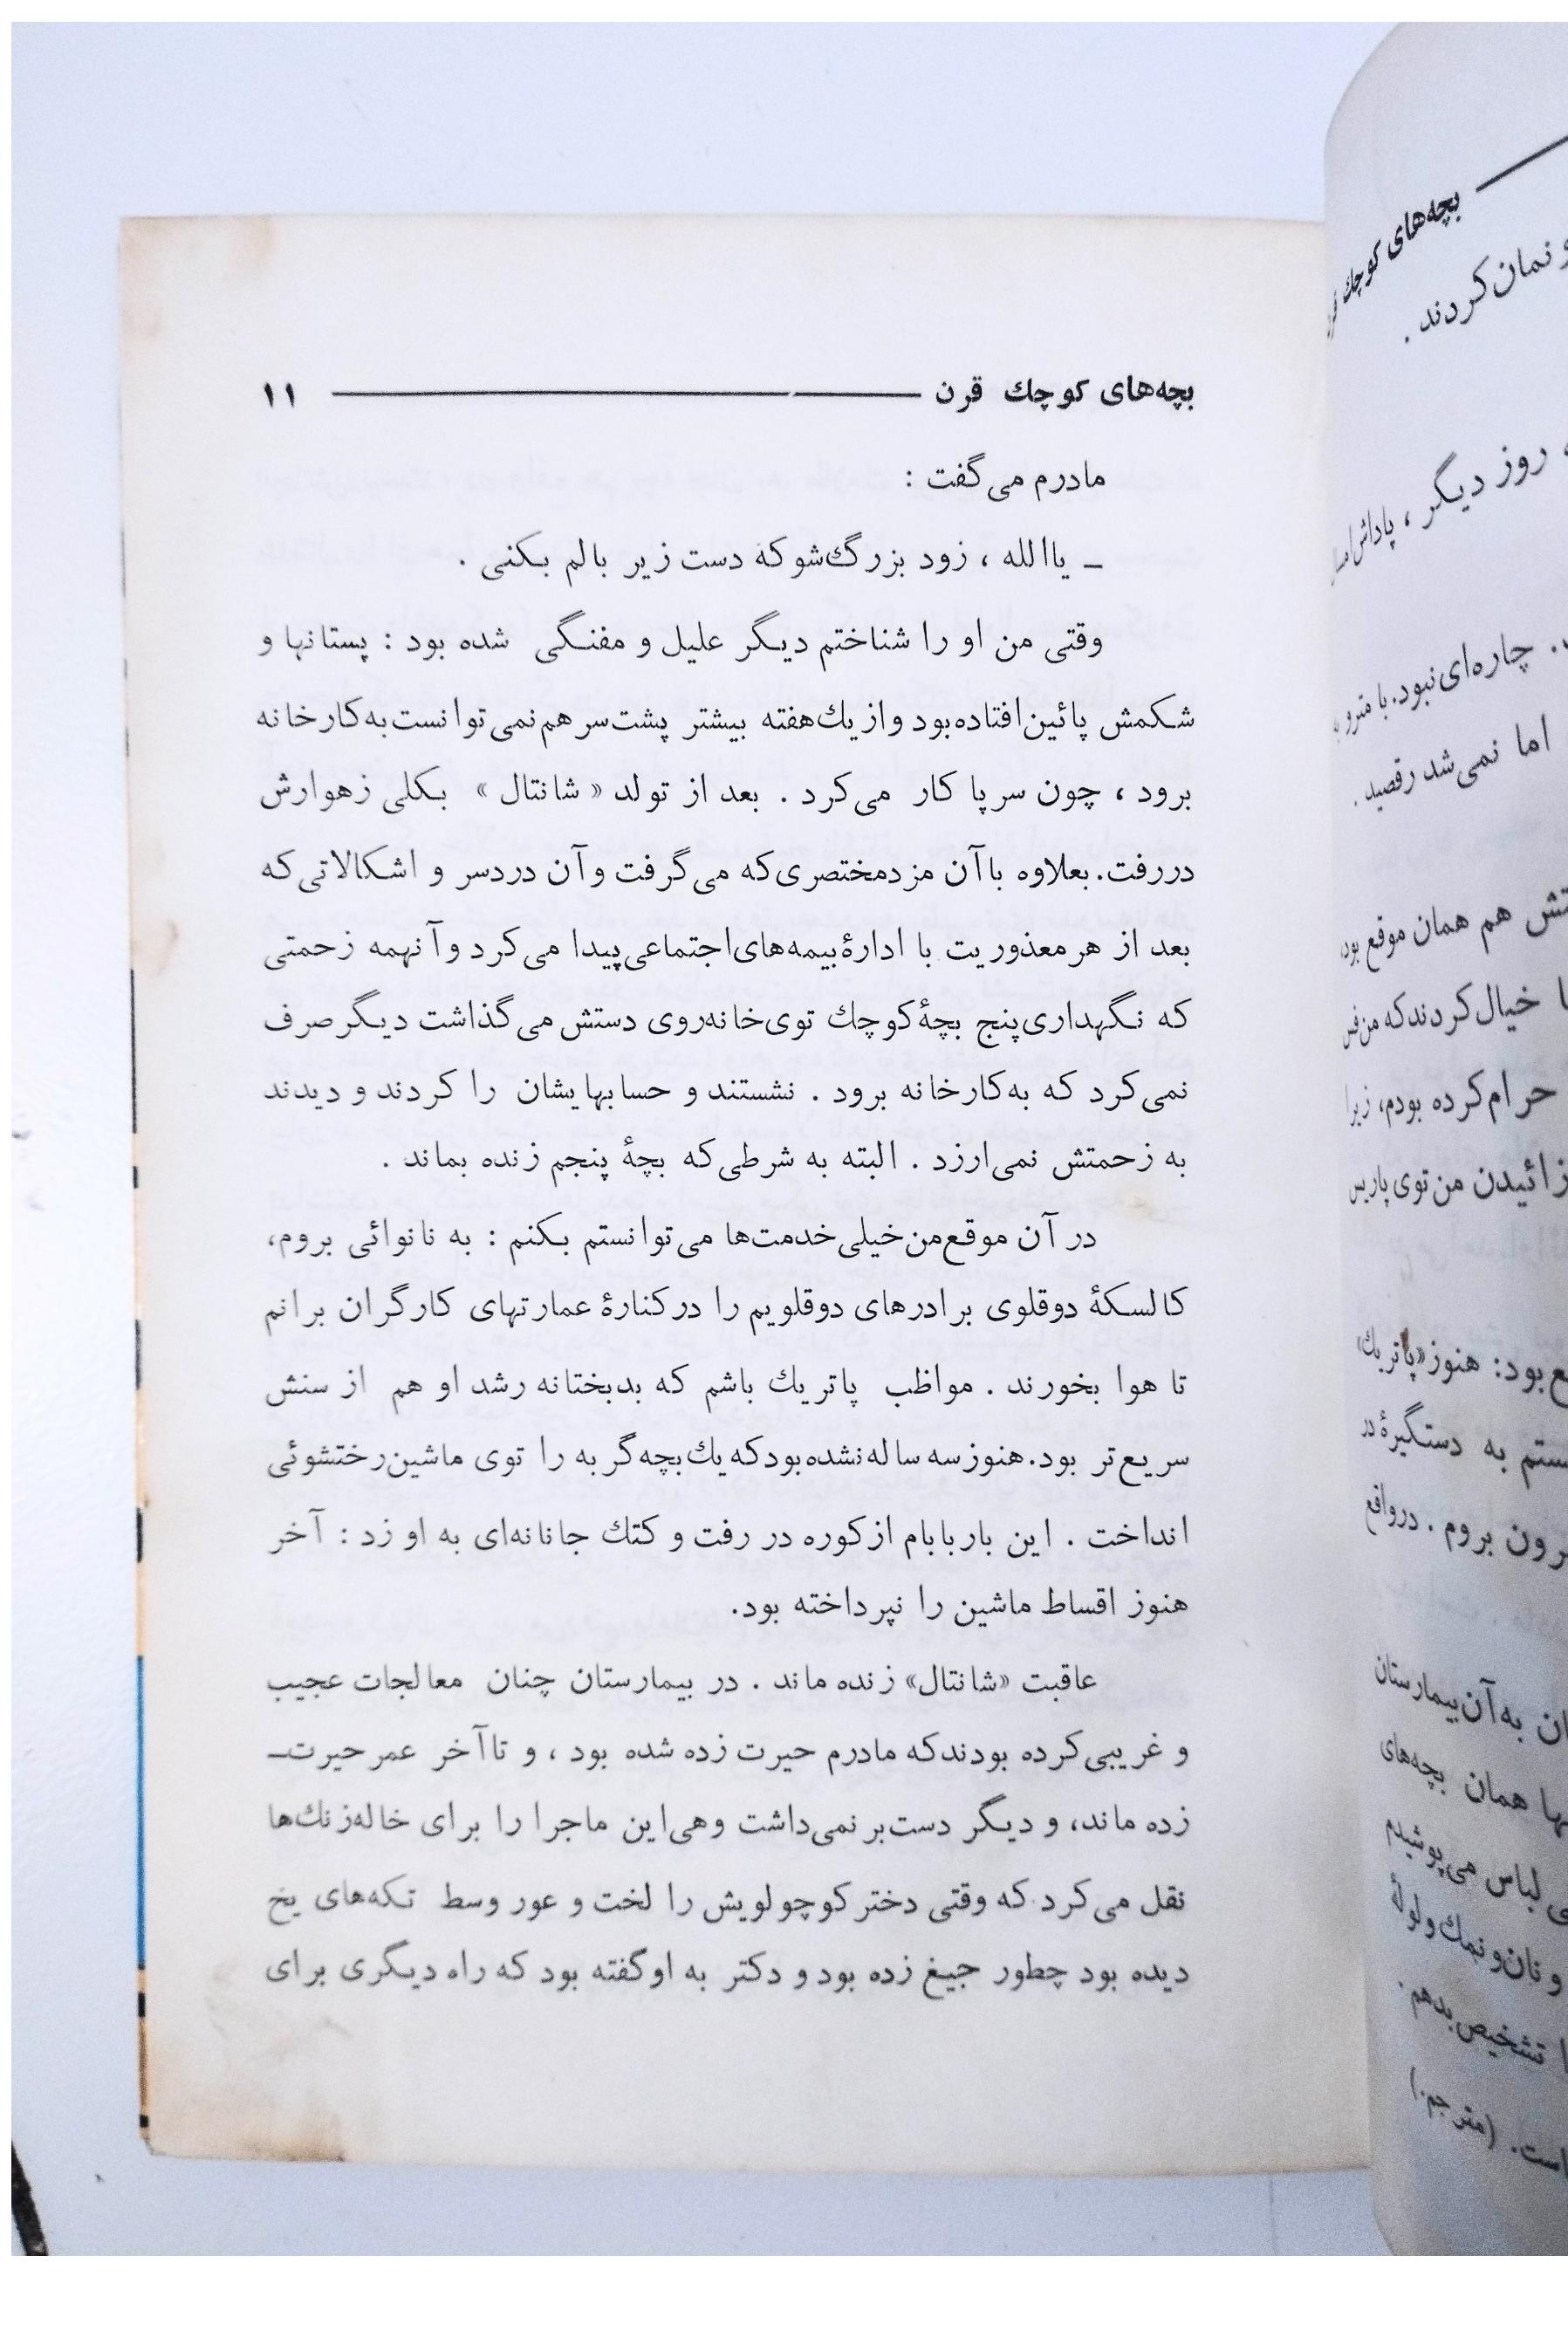 بچه‌های کوچك قرن ۱۱
مادرم می‌گفت :
ـ یاالله ، زود بزرگ‌شو که دست زیر بالم بکنی .
وقتی من او را شناختم دیگر علیل و مفنگی شده بود : پستانها و
شکمش پائین‌افتاده‌بود واز یك‌هفته بیشتر پشت‌سر هم‌نمی‌توانست‌به‌کارخانه
برود ، چون سرپا کار می‌کرد . بعد از تولد «شانتال» بکلی زهوارش
دررفت. بعلاوه باآن مزدمختصری‌که می‌گرفت وآن دردسر و اشکالاتی‌که
بعد از هرمعذوریت با ادارهٔ‌بیمه‌های‌اجتماعی‌پیدا می‌کرد وآنهمه زحمتی
که نگهداری‌پنج بچهٔ‌کوچك توی‌خانه‌روی دستش می‌گذاشت دیگرصرف
نمی‌کرد که به‌کارخانه برود . نشستند و حسابهایشان را کردند و دیدند
به زحمتش نمی‌ارزد . البته به شرطی‌که بچهٔ پنجم زنده بماند .
در آن موقع‌من‌خیلی‌خدمت‌ها می‌توانستم بکنم : به نانوائی بروم،
کالسکهٔ دوقلوی برادرهای دوقلویم را درکنارهٔ عمارتهای کارگران برانم
تا هوا بخورند . مواظب پاتریك باشم که بدبختانه رشد او هم از سنش
سریع‌تر بود. هنوزسه ساله‌نشده‌بودکه‌یك‌بچه‌گربه را توی ماشین‌رختشوئی
انداخت . این باربابام ازکوره در رفت و کتك جانانه‌ای به او زد : آخر
هنوز اقساط ماشین را نپرداخته بود.
عاقبت «شانتال» زنده ماند . در بیمارستان چنان معالجات عجیب
و غریبی‌کرده بودندکه مادرم حیرت زده شده بود ، و تاآخر عمرحیرت‌ـ
زده ماند، و دیگر دست‌برنمی‌داشت وهی‌این ماجرا را برای خاله‌زنك‌ها
نقل می‌کرد که وقتی دخترکوچولویش را لخت و عور وسط تکه‌های یخ
دیده بود چطور جیغ زده بود و دکتر به اوگفته بود که راه دیگری برای
بچه‌های کوچك
نمان‌کردند .
روز دیگر ، پاداش
چاره‌ای‌نبود. با مترو
اما نمی‌شد رقصید .
هم همان موقع بود،
خیال‌کردندکه من
حرام‌کرده بودم، زیرا
زائیدن من توی پاریس
بود: هنوز «پاتریك»
به دستگیرهٔ در
بروم . درواقع
به‌آن‌بیمارستان
همان بچه‌های
لباس می‌پوشیدم
و نان‌و نمك ولولهٔ
تشخیص‌بدهم .
است. (مترجم.)